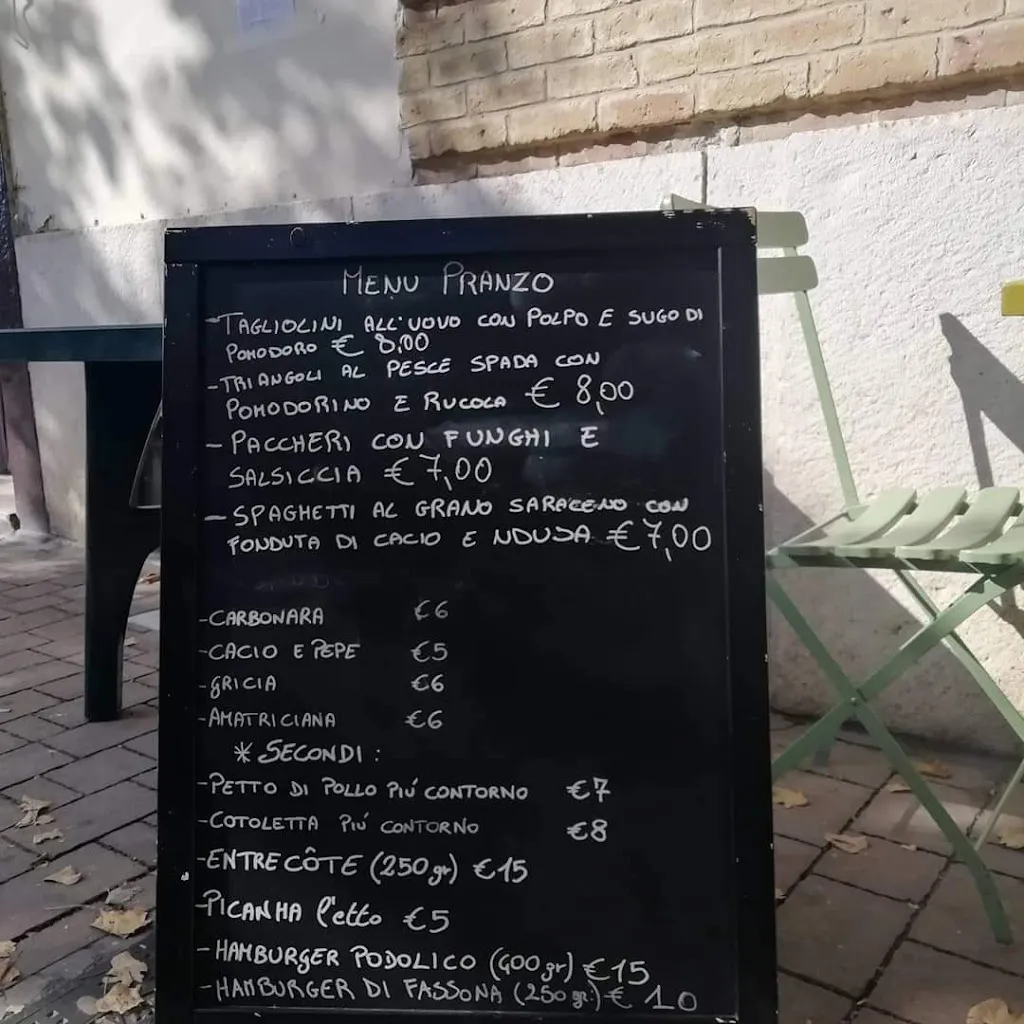 MENU PRANZO
-TAGLIOLINI ALL'UOVO CON POLPO E SUGO DI
POMODORO € 8,00
-TRIANGOLI AL PESCE SPADA CON
POMODORINO E RUCOLA € 8,00
- PACCHERI CON FUNGHI E
SALSICCIA € 7,00
- SPAGHETTI AL GRANO SARACENO CON
FONDUTA DI CACIO E NDUJA € 7,00
-CARBONARA €6
-CACIO E PEPE €5
-GRICIA €6
-AMATRICIANA €6
* SECONDI :
-PETTO DI POLLO PIÚ CONTORNO €7
-COTOLETTA PIÚ CONTORNO €8
-ENTRECÔTE (250gr) €15
-PICANHA l'etto €5
-HAMBURGER PODOLICO (400gr) €15
-HAMBURGER DI FASSONA (250gr.) € 10